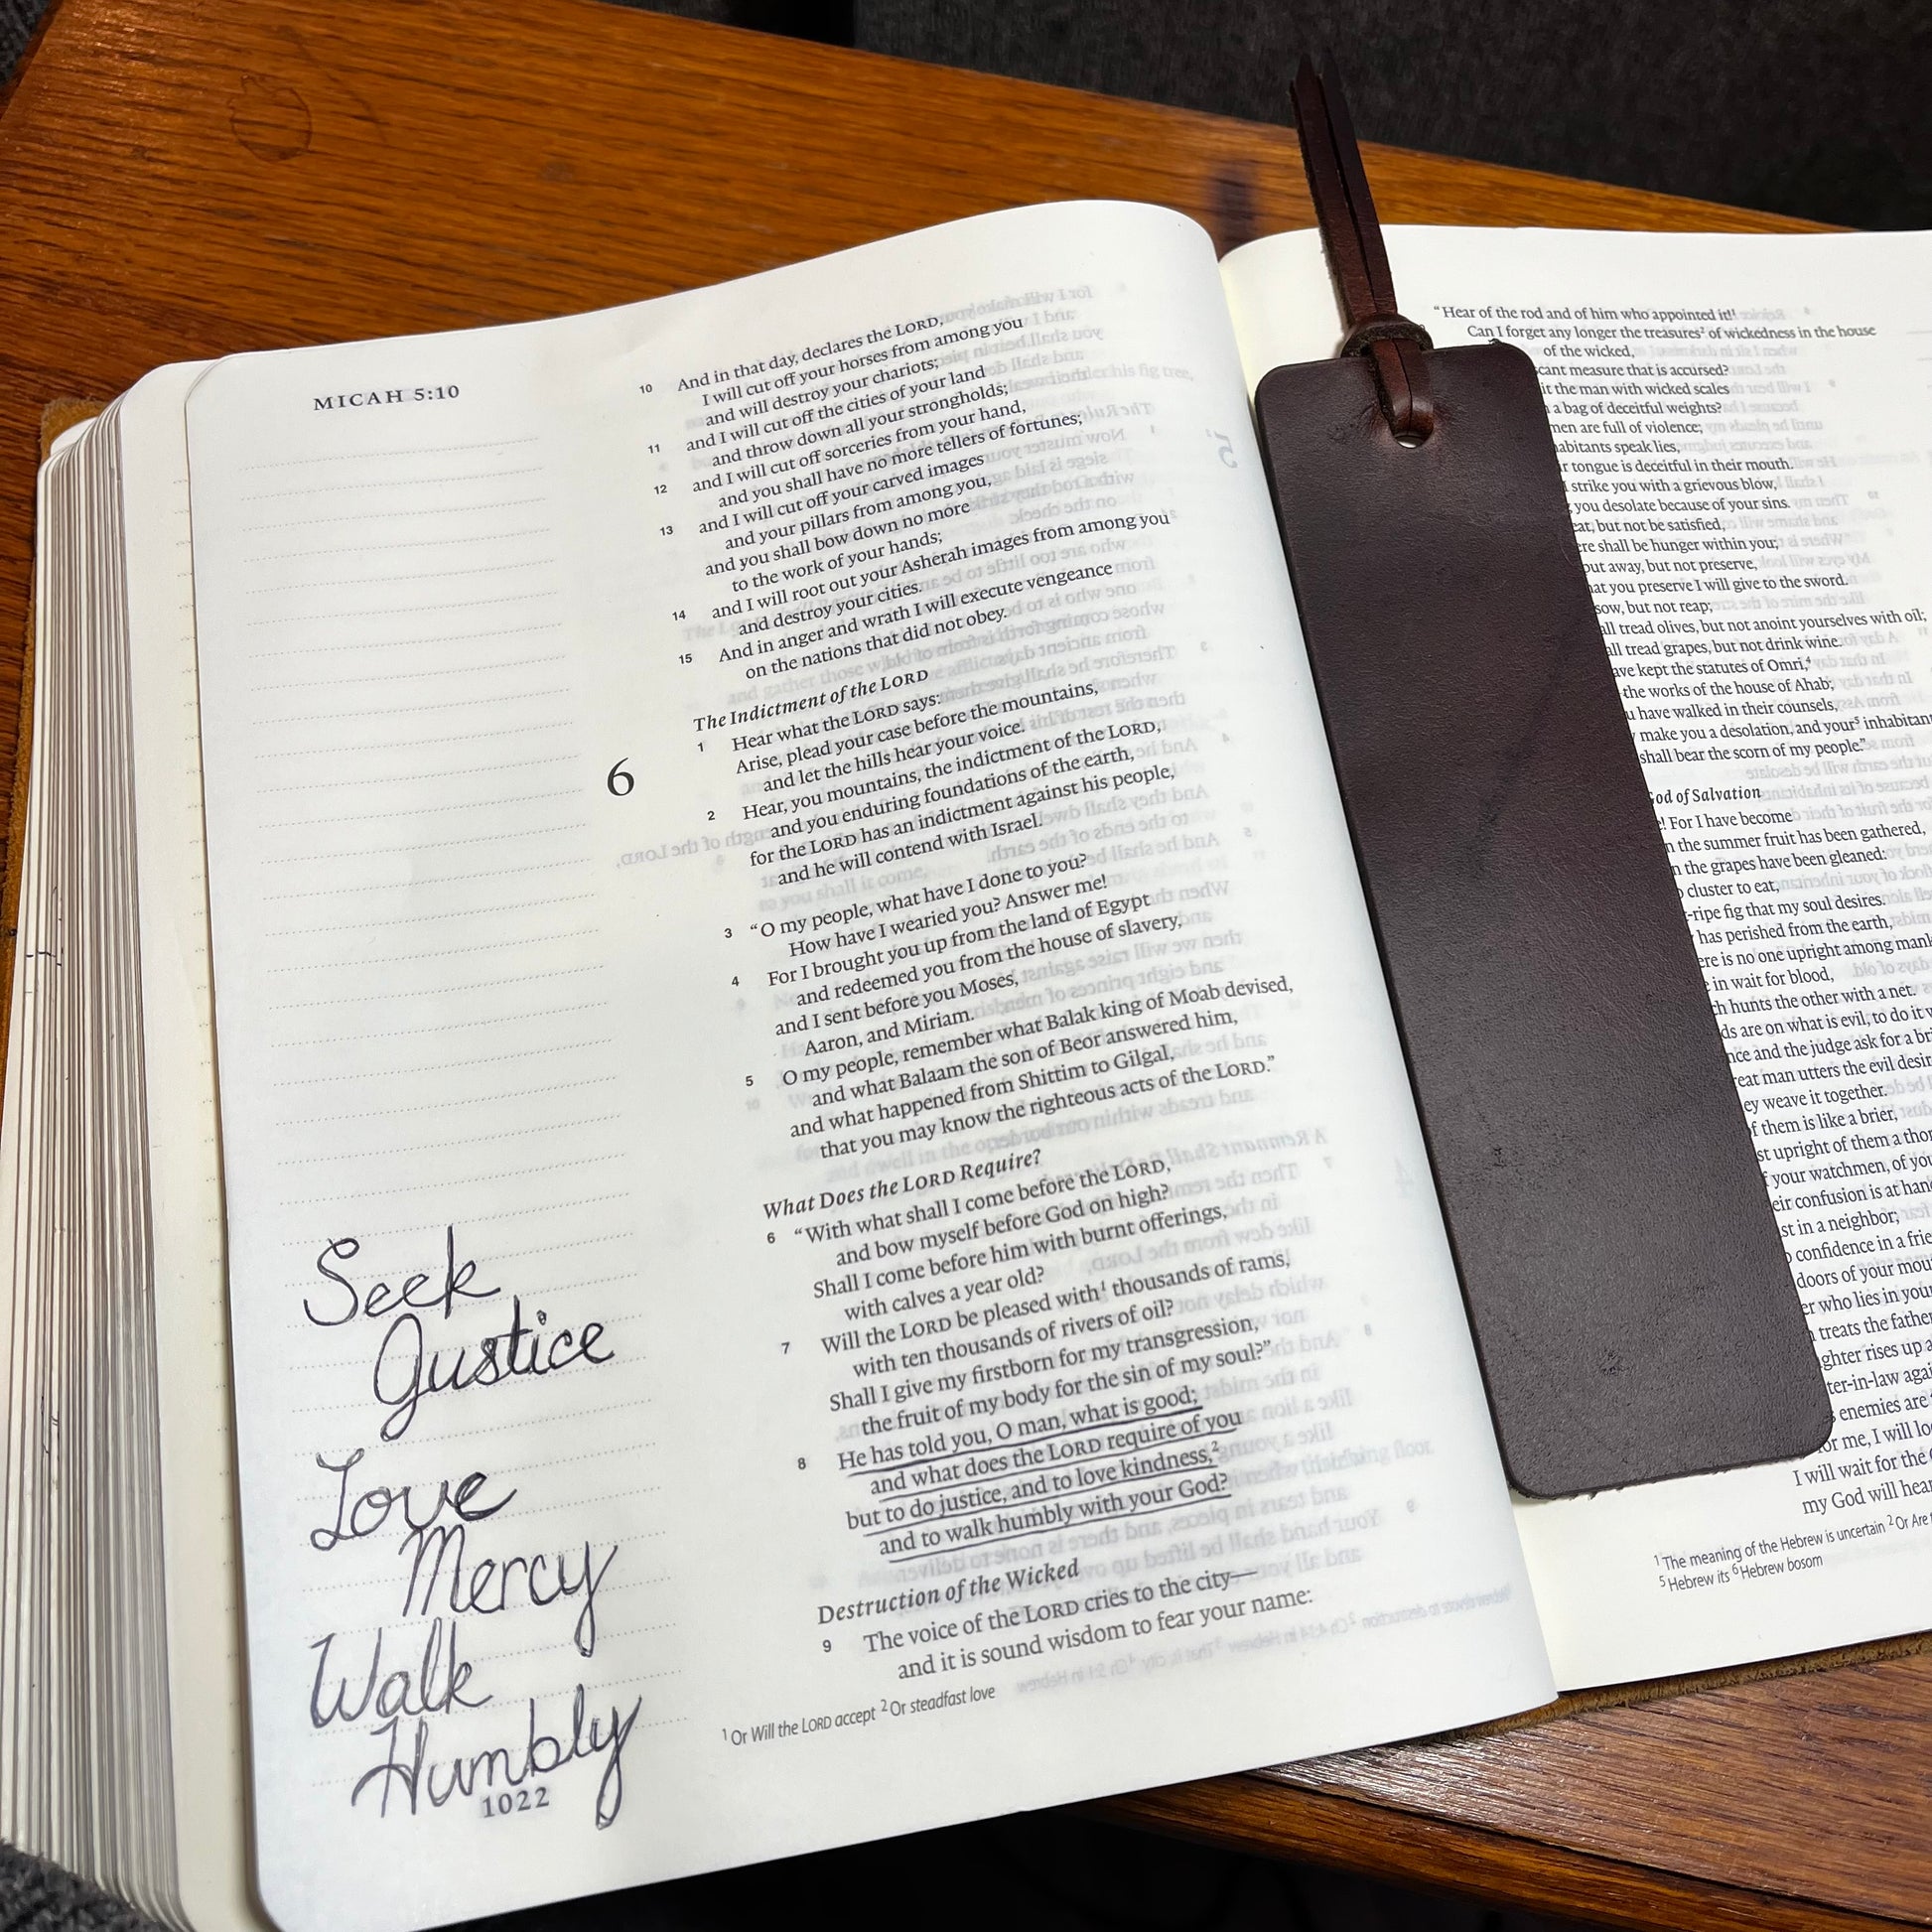 MICAH 5:10
10 And in that day, declares the LORD,
I will cut off your horses from among you
and will destroy your chariots;
11 and I will cut off the cities of your land
and throw down all your strongholds;
12 and I will cut off sorceries from your hand,
and you shall have no more tellers of fortunes;
13 and I will cut off your carved images
and your pillars from among you,
and you shall bow down no more
to the work of your hands;
14 and I will root out your Asherah images from among you
and destroy your cities.
15 And in anger and wrath I will execute vengeance
on the nations that did not obey.
The Indictment of the LORD
6
1 Hear what the LORD says:
Arise, plead your case before the mountains,
and let the hills hear your voice.
2 Hear, you mountains, the indictment of the LORD,
and you enduring foundations of the earth,
for the LORD has an indictment against his people,
and he will contend with Israel.
3 “O my people, what have I done to you?
How have I wearied you? Answer me!
4 For I brought you up from the land of Egypt
and redeemed you from the house of slavery,
and I sent before you Moses,
Aaron, and Miriam.
5 O my people, remember what Balak king of Moab devised,
and what Balaam the son of Beor answered him,
and what happened from Shittim to Gilgal,
that you may know the righteous acts of the LORD.”
What Does the LORD Require?
6 “With what shall I come before the LORD,
and bow myself before God on high?
Shall I come before him with burnt offerings,
with calves a year old?
7 Will the LORD be pleased with¹ thousands of rams,
with ten thousands of rivers of oil?
Shall I give my firstborn for my transgression,
the fruit of my body for the sin of my soul?”
8 He has told you, O man, what is good;
and what does the LORD require of you
but to do justice, and to love kindness,²
and to walk humbly with your God?
Destruction of the Wicked
9 The voice of the LORD cries to the city—
and it is sound wisdom to fear your name:
¹ Or Will the LORD accept ² Or steadfast love
Seek
Justice
Love
Mercy
Walk
Humbly
1022
“Hear of the rod and of him who appointed it!¹
Can I forget any longer the treasures² of wickedness in the house
of the wicked,
measure that is accursed?
the man with wicked scales
a bag of deceitful weights?
men are full of violence;
speak lies,
tongue is deceitful in their mouth.
strike you with a grievous blow,
you desolate because of your sins.
but not be satisfied,
shall be hunger within you;
away, but not preserve,
you preserve I will give to the sword.
sow, but not reap;
tread olives, but not anoint yourselves with oil;
tread grapes, but not drink wine.
kept the statutes of Omri,⁴
the works of the house of Ahab;
have walked in their counsels,
make you a desolation, and your⁵
shall bear the scorn of my people.”
God of Salvation
For I have become
the summer fruit has been gathered,
the grapes have been gleaned:
cluster to eat,
ripe fig that my soul desires.
has perished from the earth,
is no one upright among
in wait for blood,
hunts the other with a net.
are on what is evil, to do it
and the judge ask for a
man utters the evil
weave it together.
of them is like a brier,
upright of them a
your watchmen, of
confusion is at
in a neighbor;
confidence in a
doors of your
who lies in
treats the
rises up
enemies are
for me, I will
I will wait for the
my God will
¹ The meaning of the Hebrew is uncertain ² Or Are
⁵ Hebrew its ⁶ Hebrew bosom